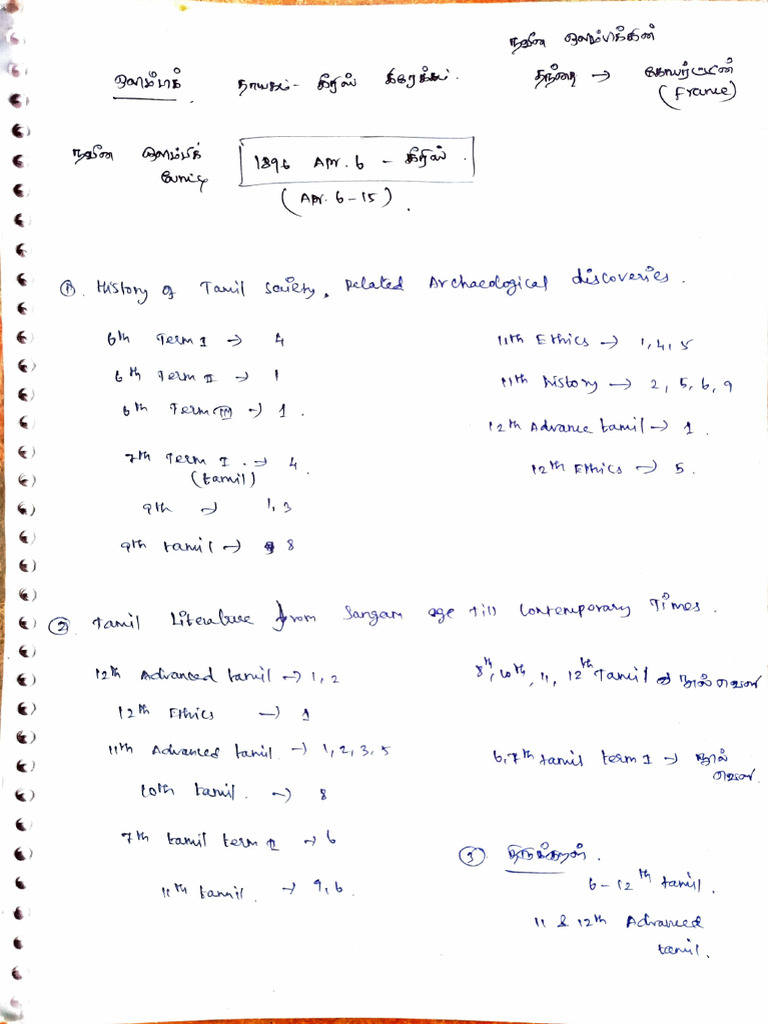 நவீன ஒலிம்பிக்கின்
ஒலிம்பிக் தாயகம் - கிரீஸ் தந்தை →
(France)
நவீன ஒலிம்பிக் 1896 Apr. 6 - கிரீஸ்.
போட்டி
(Apr. 6-15).
①. History of Tamil Society, Related Archaeological discoveries.
6th Term I → 4 11th Ethics → 1,4,5
6th Term II → 1 11th history → 2, 5, 6, 9
6th Term III → 1. 12th Advance tamil → 1.
7th Term I. → 4. 12th Ethics → 5.
(tamil)
9th → 1,3
9th tamil → 8
② Tamil Literature from Sangam age till Contemporary Times.
12th Advanced tamil → 1,2 8th, 10th, 11, 12th Tamil நூல் வெளி
12th Ethics → 1
11th Advanced tamil. → 1, 2, 3, 5 6,7th tamil term I → நூல்
வெளி.
10th tamil. → 8
7th tamil term II → 6 ③ திருக்குறள்.
11th tamil. → 9,6. 6-12th tamil.
11 & 12th Advanced
tamil.